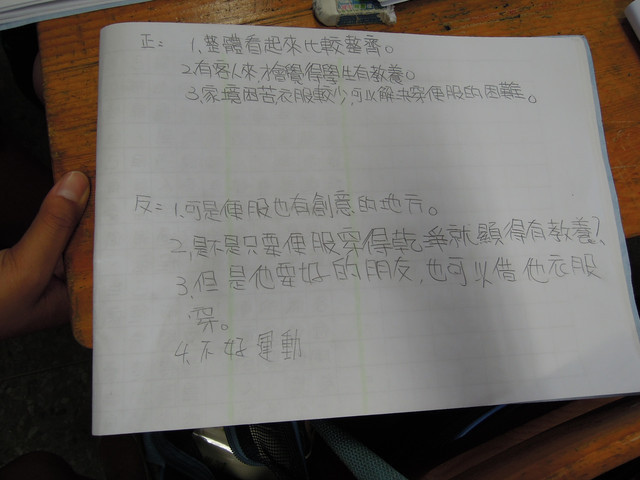 正: 1.整體看起來比較整齊。
2.有客人來才會覺得學生有教養。
3.家境困苦衣服較少,可以解決穿便服的困難。
反: 1.可是便服也有創意的地方。
2.是不是只要便服穿得乾淨就顯得有教養?
3.但是他要好的朋友,也可以借他衣服
穿。
4.不好運動